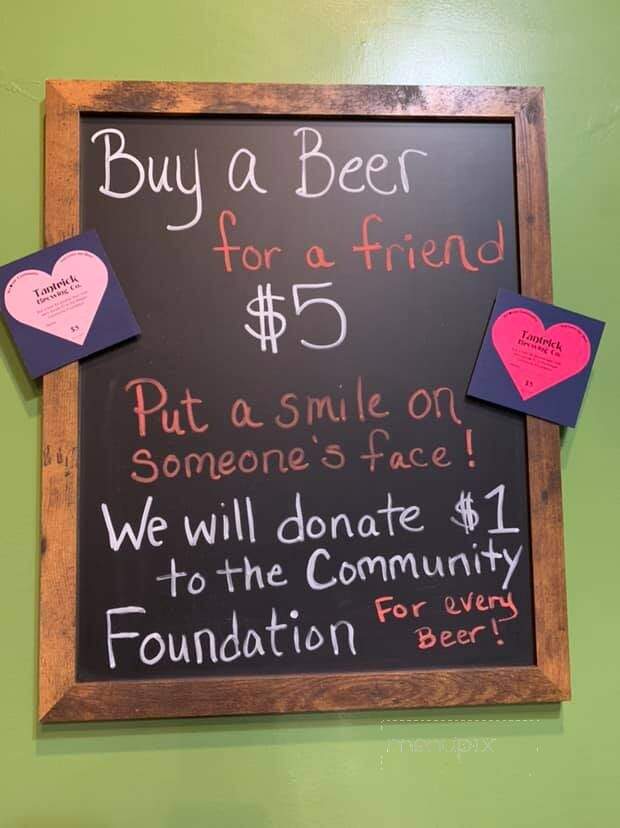 Buy a Beer
for a friend
$5
Put a smile on
someone's face!
We will donate $1
to the Community
Foundation
For every
Beer!
Tantrick
Brewing Co.
$5
Tantrick
Brewing Co.
$5
menupix